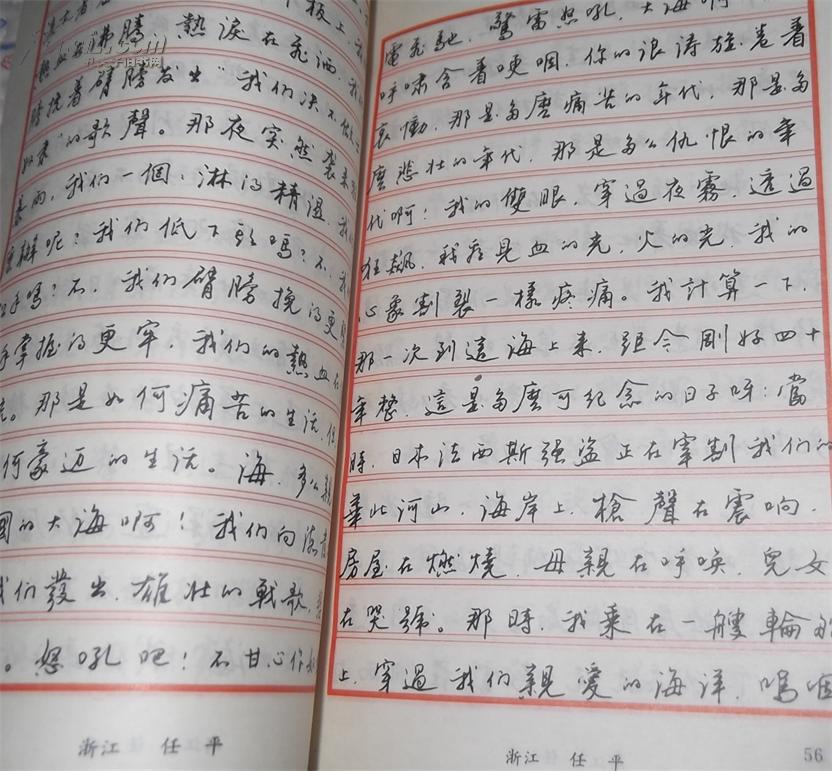 板上，
沸騰，熱淚在飛洒，
挽着臂膀发出“我们决不
的歌聲。那夜突然襲来
暴雨，我们一個個淋得精湿，
呢？我们低下頭嗎？不，
手嗎？不，我们臂膀挽得更
手掌握得更牢，我们的熱血在
。那是如何痛苦的生活，但
何豪迈的生活。海，多么
國的大海啊！我们向
我们發出雄壮的戰歌，
。怒吼吧！不甘心作
浙江 任平
電飛馳，驚雷怒吼，大海啊
呼啸含着哽咽，你的浪涛旋卷着
哀慟，那是多麼痛苦的年代，那是多
麼悲壮的年代，那是多么仇恨的年
代啊！我的雙眼，穿過夜霧，透過
狂飙，我看見血的光，火的光，我的
心象割裂一樣疼痛。我計算一下，
那一次到這海上来，距今剛好四十
年整，這是多麼可纪念的日子呀：當
時，日本法西斯强盗正在宰割我们的
華北河山，海岸上，槍聲在震响，
房屋在燃燒，母親在呼唤，兒女
在哭號。那時，我乘在一艘輪船
上，穿過我们親愛的海洋，嗚咽
浙江 任平
56